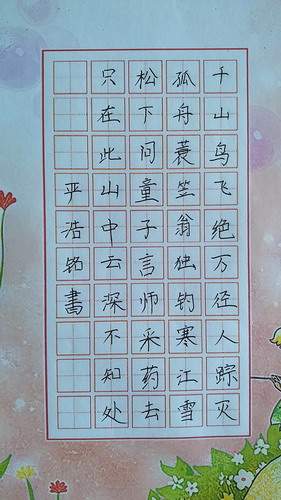 千山鸟飞绝万径人踪灭
孤舟蓑笠翁独钓寒江雪
松下问童子言师采药去
只在此山中云深不知处
严浩铭書